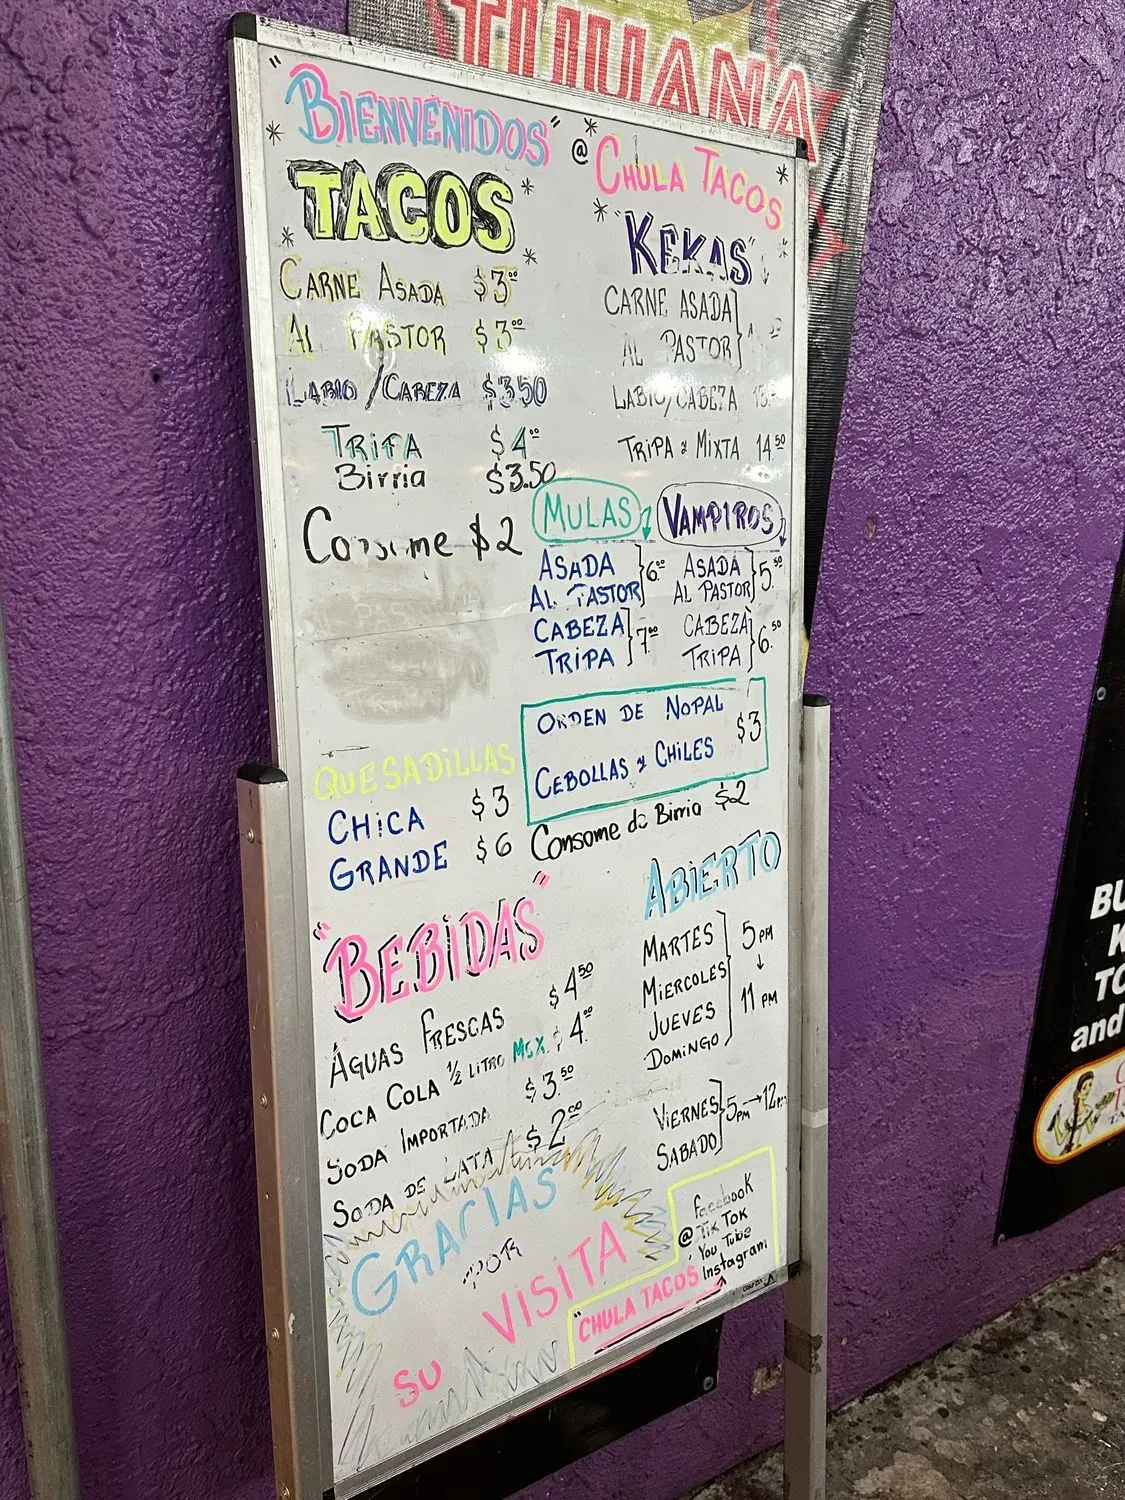 TIJUANA
"BIENVENIDOS"
@ CHULA TACOS
TACOS
CARNE ASADA $3.00
AL PASTOR $3.00
LABIO/CABEZA $3.50
TRIPA $4.00
Birria $3.50
Consome $2
"KEKAS"
CARNE ASADA
AL PASTOR
LABIO/CABEZA
TRIPA y MIXTA 14.50
MULAS
ASADA
AL PASTOR } 6.00
CABEZA
TRIPA } 7.00
VAMPIROS
ASADA
AL PASTOR } 5.50
CABEZA
TRIPA } 6.50
ORDEN DE NOPAL
CEBOLLAS y CHILES $3
Consome de Birria $2
QUESADILLAS
CHICA $3
GRANDE $6
"BEBIDAS"
AGUAS FRESCAS $4.50
COCA COLA 1/2 LITRO MEX. $4.00
SODA IMPORTADA $3.50
SODA DE LATA $2.00
ABIERTO
MARTES
MIERCOLES
JUEVES
DOMINGO
5 PM ↓ 11 PM
VIERNES
SABADO
5PM → 12PM
GRACIAS
POR
SU VISITA
Facebook
@ TikTok
You Tube
Instagram
"CHULA TACOS
BU
K
TO
and